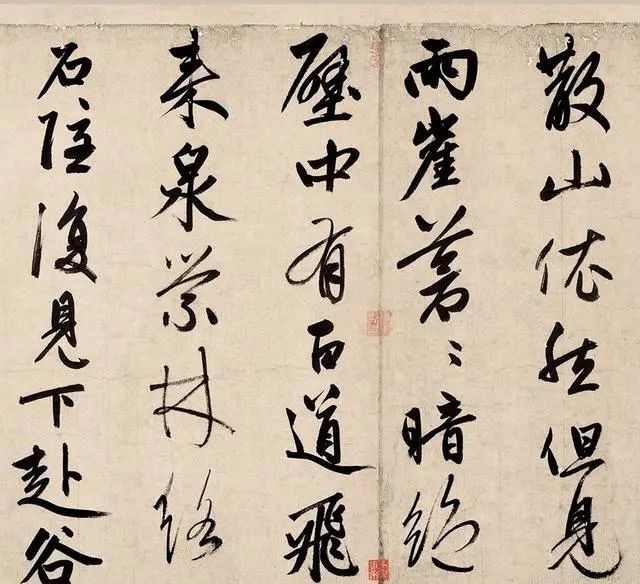 散山依然但見
兩崖蒼〻暗絶
壁中有百道飛
来泉縈林絡
石隱復見下赴谷